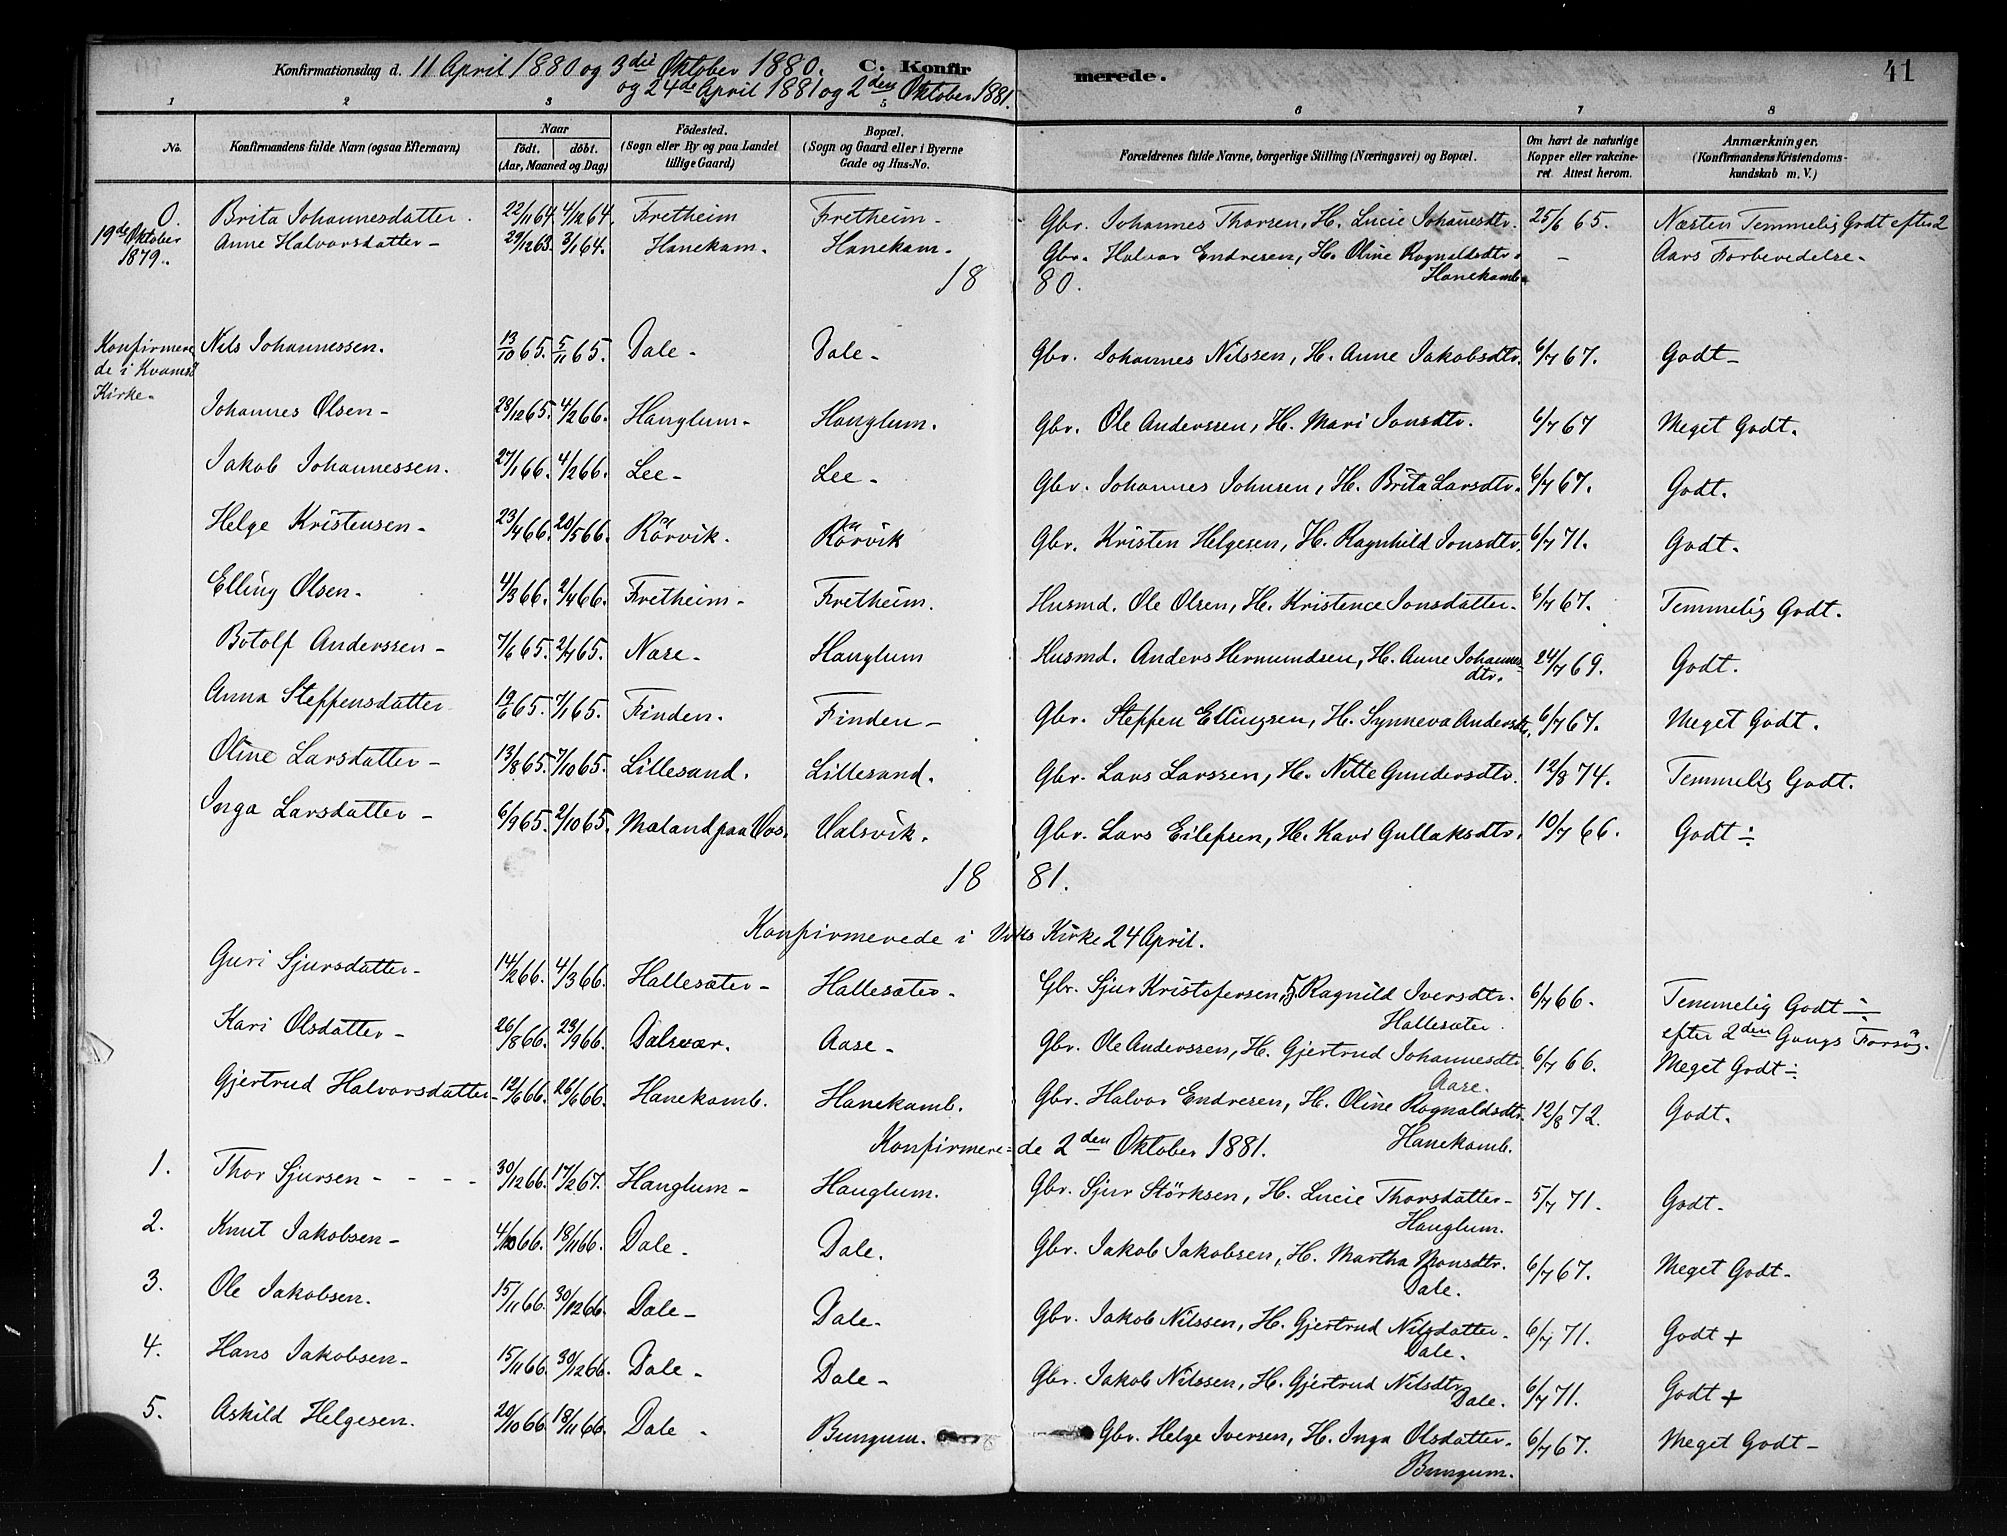 Konfirmationsdag d. 11 April 1880 og 3die Oktober 1880. C. Konfirmerede. 41
og 24de April 1881 og 2den Oktober 1881.
1 2 3 4 5 6 7 8
No. Konfirmandens fulde Navn (ogsaa Efternavn) Naar födt. döbt. (Aar, Maaned og Dag) Födested. (Sogn eller By og paa Landet tillige Gaard) Bopæl. (Sogn og Gaard eller i Byerne Gade og Hus-No. Forældrenes fulde Navne, borgerlige Stilling (Næringsvei) og Bopæl. Om havt de naturlige Kopper eller vakcineret. Attest herom. Anmærkninger. (Konfirmandens Kristendomskundskab m. V.)
0. Brita Johannesdatter. 22/11 64. 4/12 64. Fretheim Fretheim - Gbr. Johannes Thorsen, H. Lucie Johanesdtr. 25/6 65. Næsten Temmelig Godt efter 2
19de Oktober 1879. Anne Halvorsdatter - 29/12 63. 3/1 64. Hanekam. Hanekam. Gbr. Halvor Endresen, H. Oline Rognaldsdtr. - Aars Forberedelse -
Hanekamb.
1880.
Konfirmerede i Kvamsö Kirke - Nils Johannessen. 13/10 65. 5/11 65. Dale - Dale - Gbr. Johannes Nilssen, H. Anne Jakobsdtr. 6/7 67. Godt -
Johannes Olsen - 29/12 65. 4/2 66. Hanglum - Hanglum. Gbr. Ole Anderssen, H. Mari Jonsdtr. 6/7 67 Meget Godt.
Jakob Johannessen. 27/1 66. 4/2 66. Lee - Lee - Gbr. Johannes Johnsen, H. Brita Larsdtr. 6/7 67. Godt.
Helge Kristensen - 23/4 66. 20/5 66. Rörvik. Rörvik Gbr. Kristen Helgesen, H. Ragnhild Jonsdtr. 6/7 71. Godt.
Elling Olsen - 4/3 66. 2/4 66. Fretheim - Fretheim. Husmd. Ole Olsen, H. Kristence Jonsdatter - 6/7 67. Temmelig Godt.
Botolf Anderssen - 7/6 65. 2/7 65. Nase - Hanglum Husmd. Anders Hermundsen, H. Anne Johannesdtr. 24/7 69. Godt.
Anna Steffensdatter 19/6 65. 7/1 65. Finden. Finden - Gbr. Steffen Ellingsen, H. Synneva Andersdtr. 6/7 67. Meget Godt.
Oline Larsdatter - 13/8 65. 7/10 65. Lillesand. Lillesand. Gbr. Lars Larssen, H. Nille Gundersdtr. 12/8 74. Temmelig Godt.
Inga Larsdatter - 6/9 65. 2/10 65. Mæland paa Vos. Valsvik. Gbr. Lars Eilefsen, H. Kari Gullaksdtr. 10/7 66. Godt ÷
1881.
Konfirmerede i Viks Kirke 24 April.
Guri Sjursdatter - 14/2 66. 4/3 66. Hallesæter - Hallesæter - Gbr. Sjur Kristofersen, H. Ragnild Iversdtr. 6/7 66. Temmelig Godt ÷
Hallesæter. efter 2den Gangs Forsög.
Kari Olsdatter - 26/8 66. 23/9 66. Dalsvær. Aase - Gbr. Ole Anderssen, H. Gjertrud Johannesdtr. 6/7 66. Meget Godt ÷
Aase.
Gjertrud Halvorsdatter - 12/6 66. 26/6 66. Hanekamb. Hanekamb. Gbr. Halvor Endresen, H. Oline Rognaldsdtr. 12/8 72. Godt.
Hanekamb.
Konfirmerede 2den Oktober 1881.
1. Thor Sjursen - - - - 30/12 66. 17/2 67. Hanglum - Hanglum. Gbr. Sjur Störksen, H. Lucie Thorsdatter - 5/7 71. Godt -
Hanglum.
2. Knut Jakobsen - 4/10 66. 18/11 66. Dale - Dale. Gbr. Jakob Jakobsen, H. Martha Monsdtr. 6/7 67. Meget Godt -
Dale.
3. Ole Jakobsen. 15/11 66. 30/12 66. Dale - Dale - Gbr. Jakob Nilssen, H. Gjertrud Nilsdatter - 6/7 71. Godt +
Dale.
4. Hans Jakobsen - 15/11 66. 30/12 66. Dale - Dale - Gbr. Jakob Nilssen, H. Gjertrud Nilsdtr. 6/7 71. Godt +
Dale.
5. Askild Helgesen. 20/10 66. 18/11 66. Dale - Bungum. Gbr. Helge Iversen, H. Inga Olsdatter. 6/7 67. Meget Godt -
Bungum.